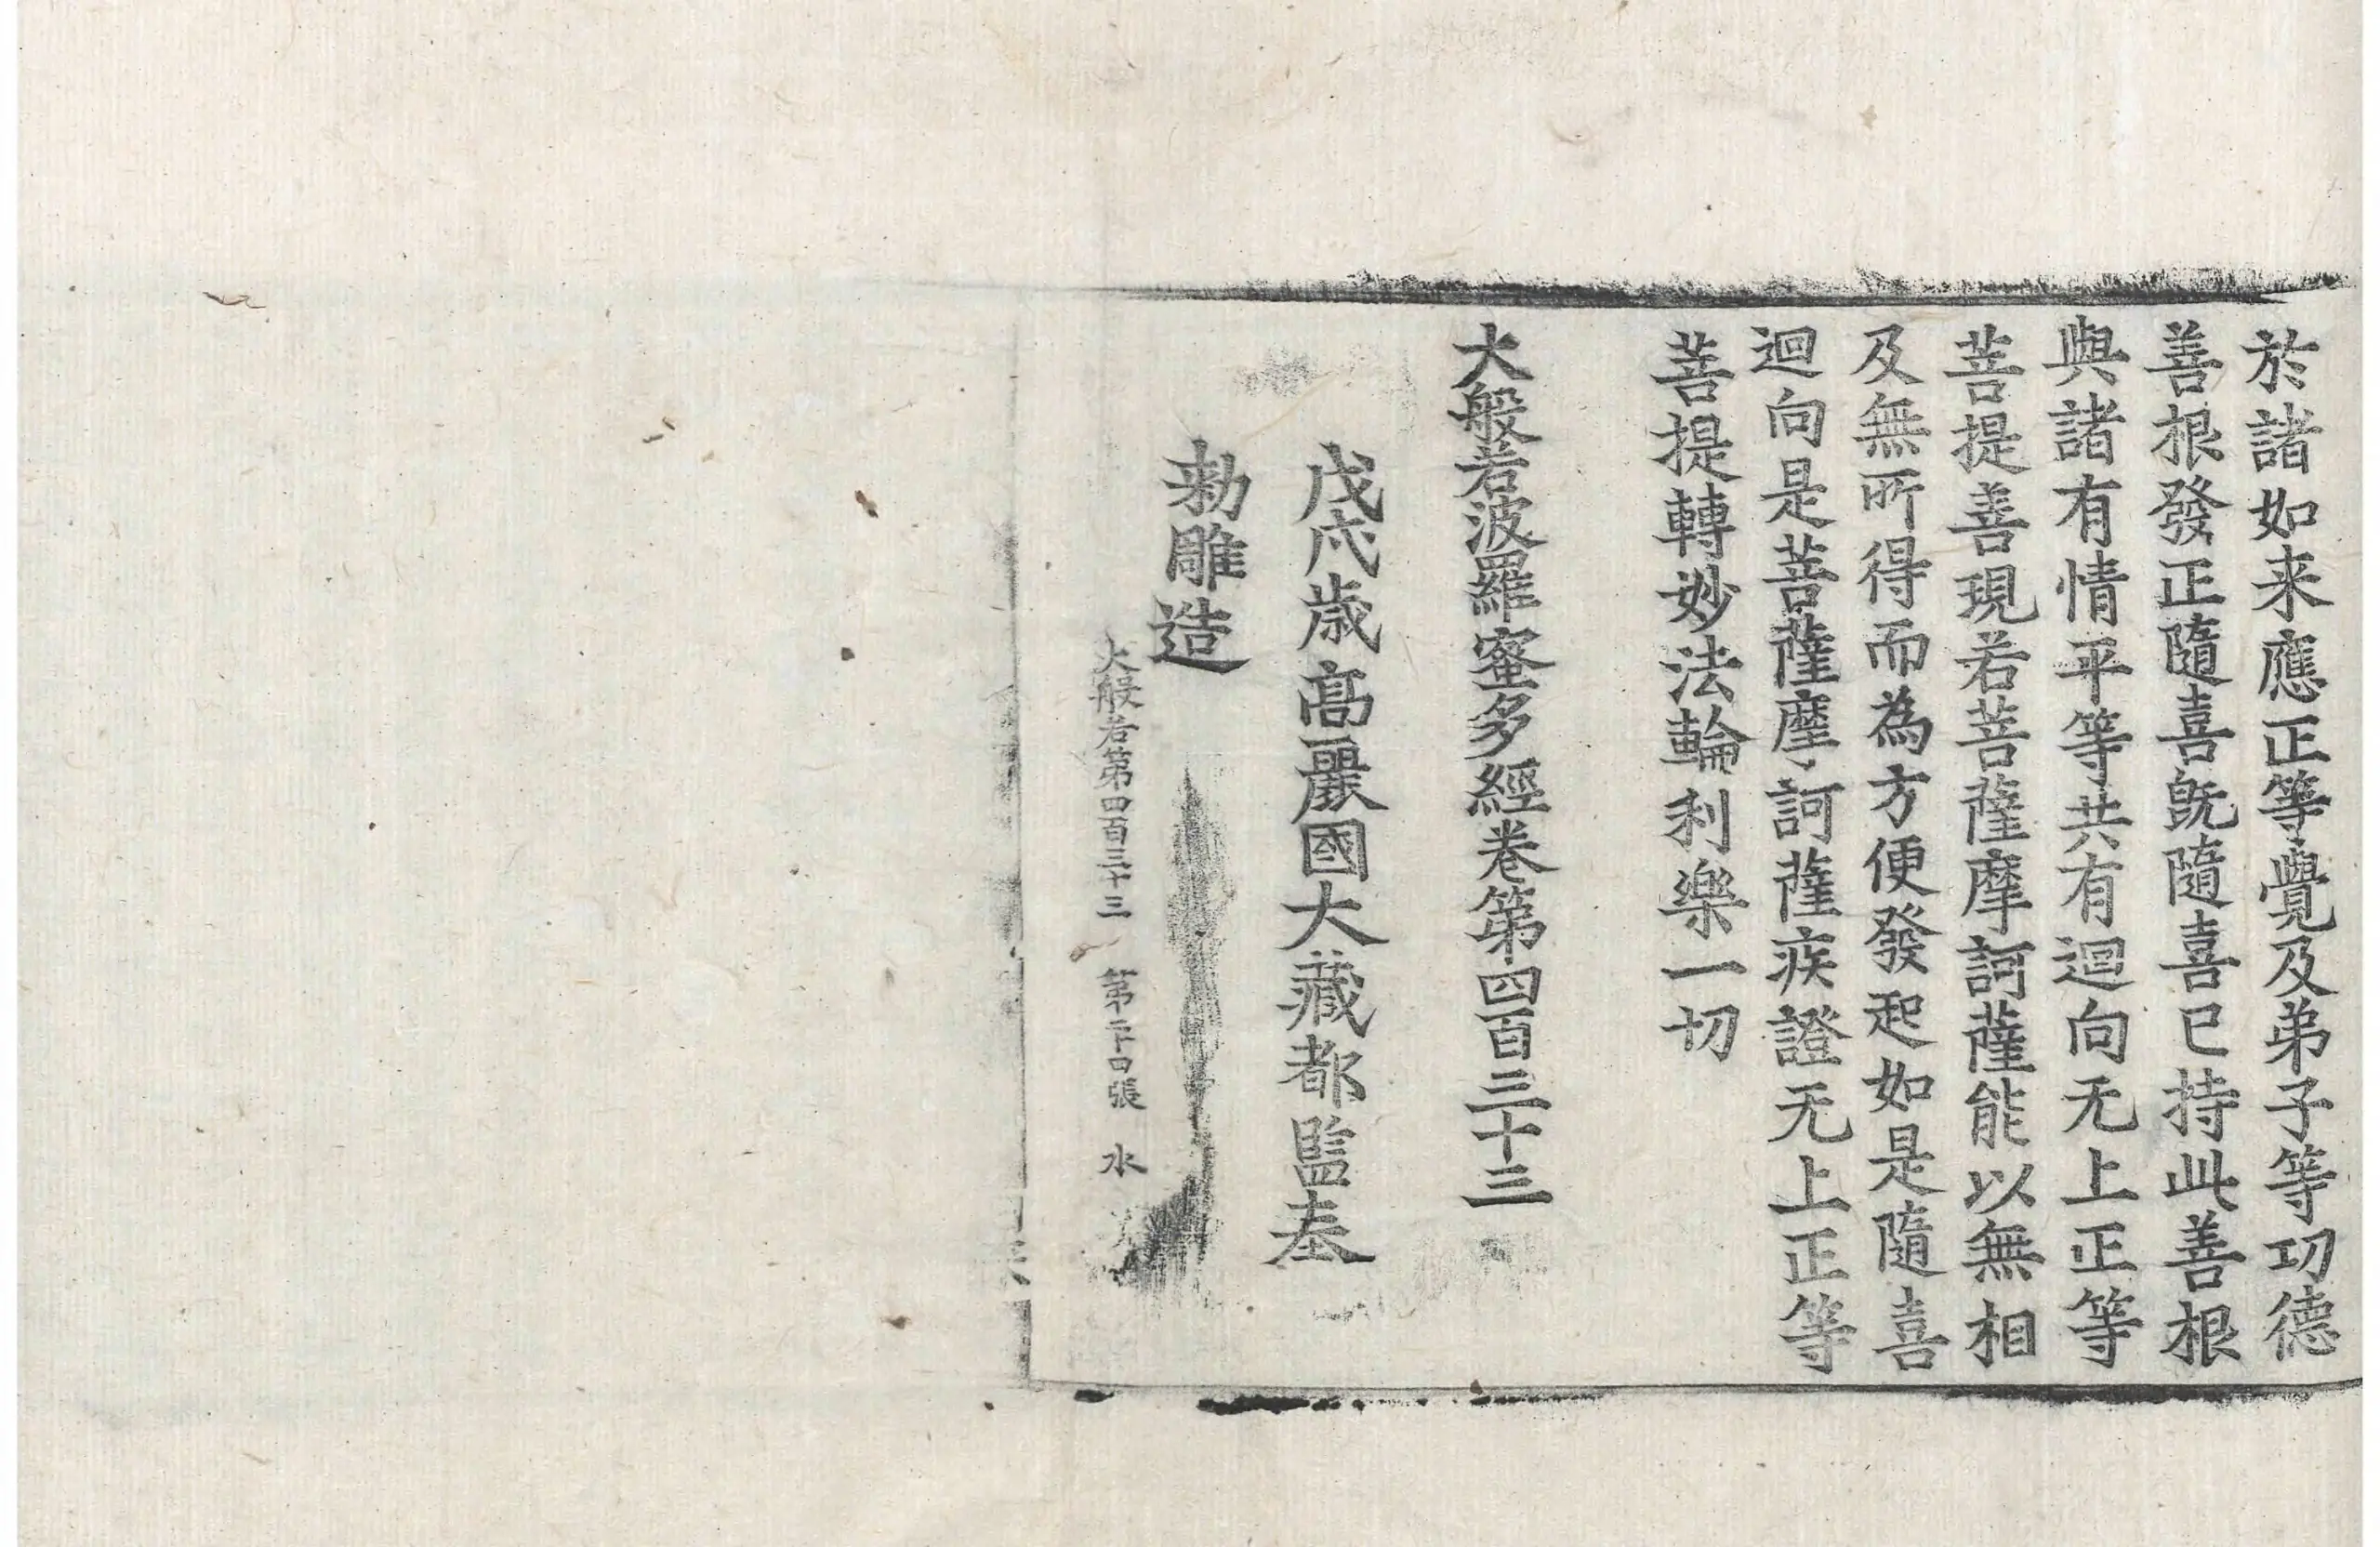 於諸如来應正等覺及弟子等功德
善根發正隨喜旣隨喜已持此善根
與諸有情平等共有迴向无上正等
菩提善現若菩薩摩訶薩能以無相
及無所得而為方便發起如是隨喜
迴向是菩薩摩訶薩疾證无上正等
菩提轉妙法輪利樂一切
大般若波羅蜜多經卷第四百三十三
戊戌歳高麗國大藏都監奉
勑雕造
大般若第四百三十三 第二十四張 水